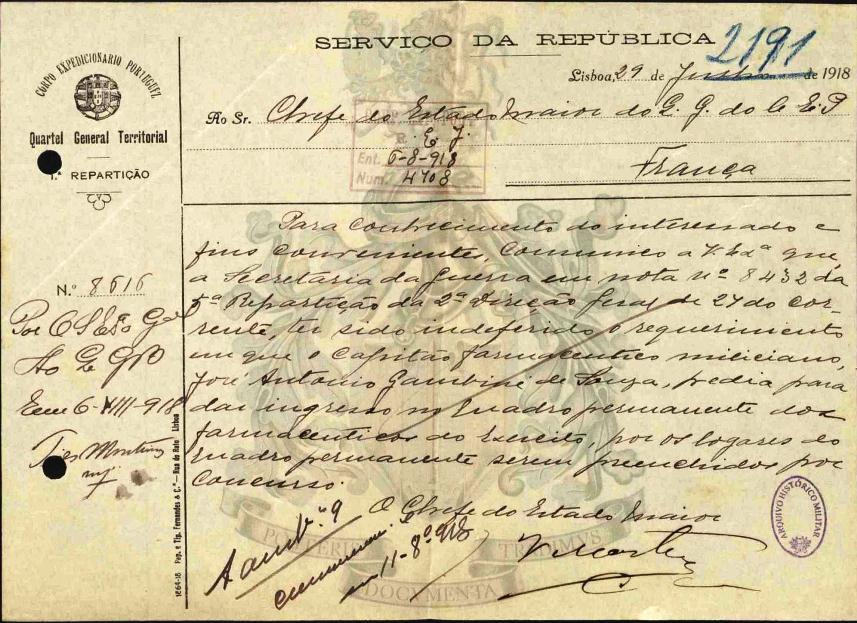 SERVIÇO DA REPÚBLICA
2191
Lisboa, 29 de de 1918
CORPO EXPEDICIONARIO PORTUGUEZ
Quartel General Territorial
1.ª REPARTIÇÃO
Ao Sr. Chefe do Estado Maior do Q. G. do C. E. P
França
R. E. J.
Ent. 6-8-918
Num. 4708
N.º 8616
Para conhecimento do interessado e
fins conveniente, communico a V. Exª que,
a Secretaria da Guerra em nota nº 8432 da
5ª Repartição da 2ª Direção Geral de 27 do cor-
rente, ter sido indeferido o requerimento
em que o capitão farmaceutico miliciano,
José Antonio Gambini de Souza, pedia para
dar ingresso no Quadro permanente dos
farmaceuticos do Exercito, por os logares do
quadro permanente serem preenchidos por
concurso.
O Chefe do Estado Maior
Em 6-VIII-918
9
em 11-8º-918
1864-18 Pap. e Tip. Fernandes & C.ª — Rua do Rato - Lisboa
ARQUIVO HISTÓRICO MILITAR
DOCVMENTA